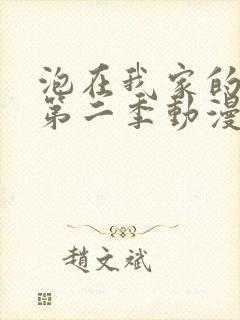 泡在我家的
第二季動漫
趙文斌